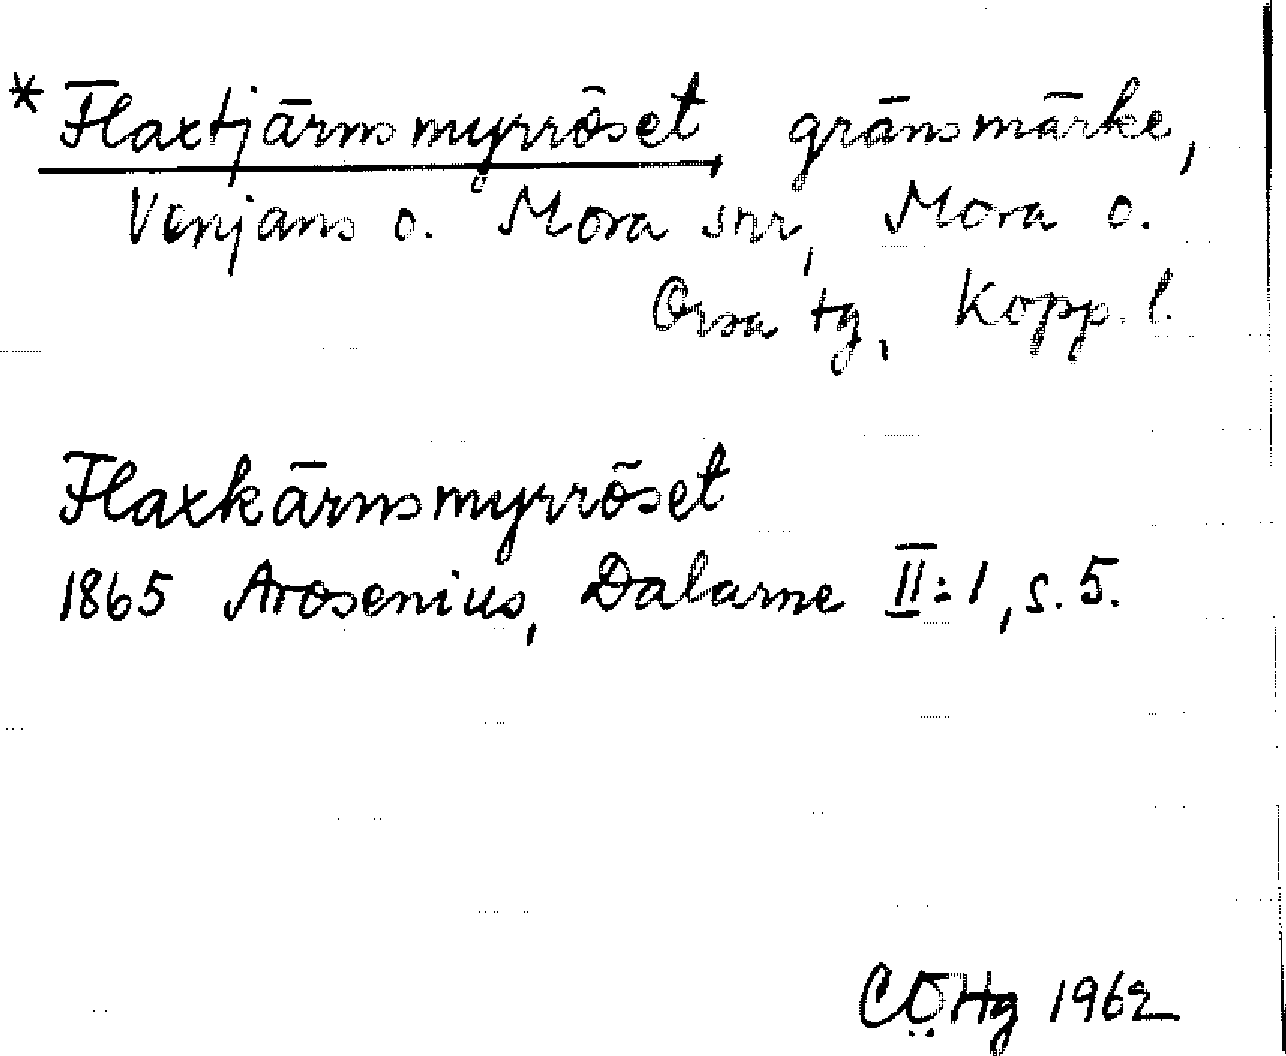 * Flaxtjärnsmyrröset gränsmärke,
Venjans o. Mora snr, Mora o.
Orsa tg, Kopp. l.
Flaxkärnsmyrröset
1865 Arosenius, Dalarne II:1, s. 5.
CÖHg 1962